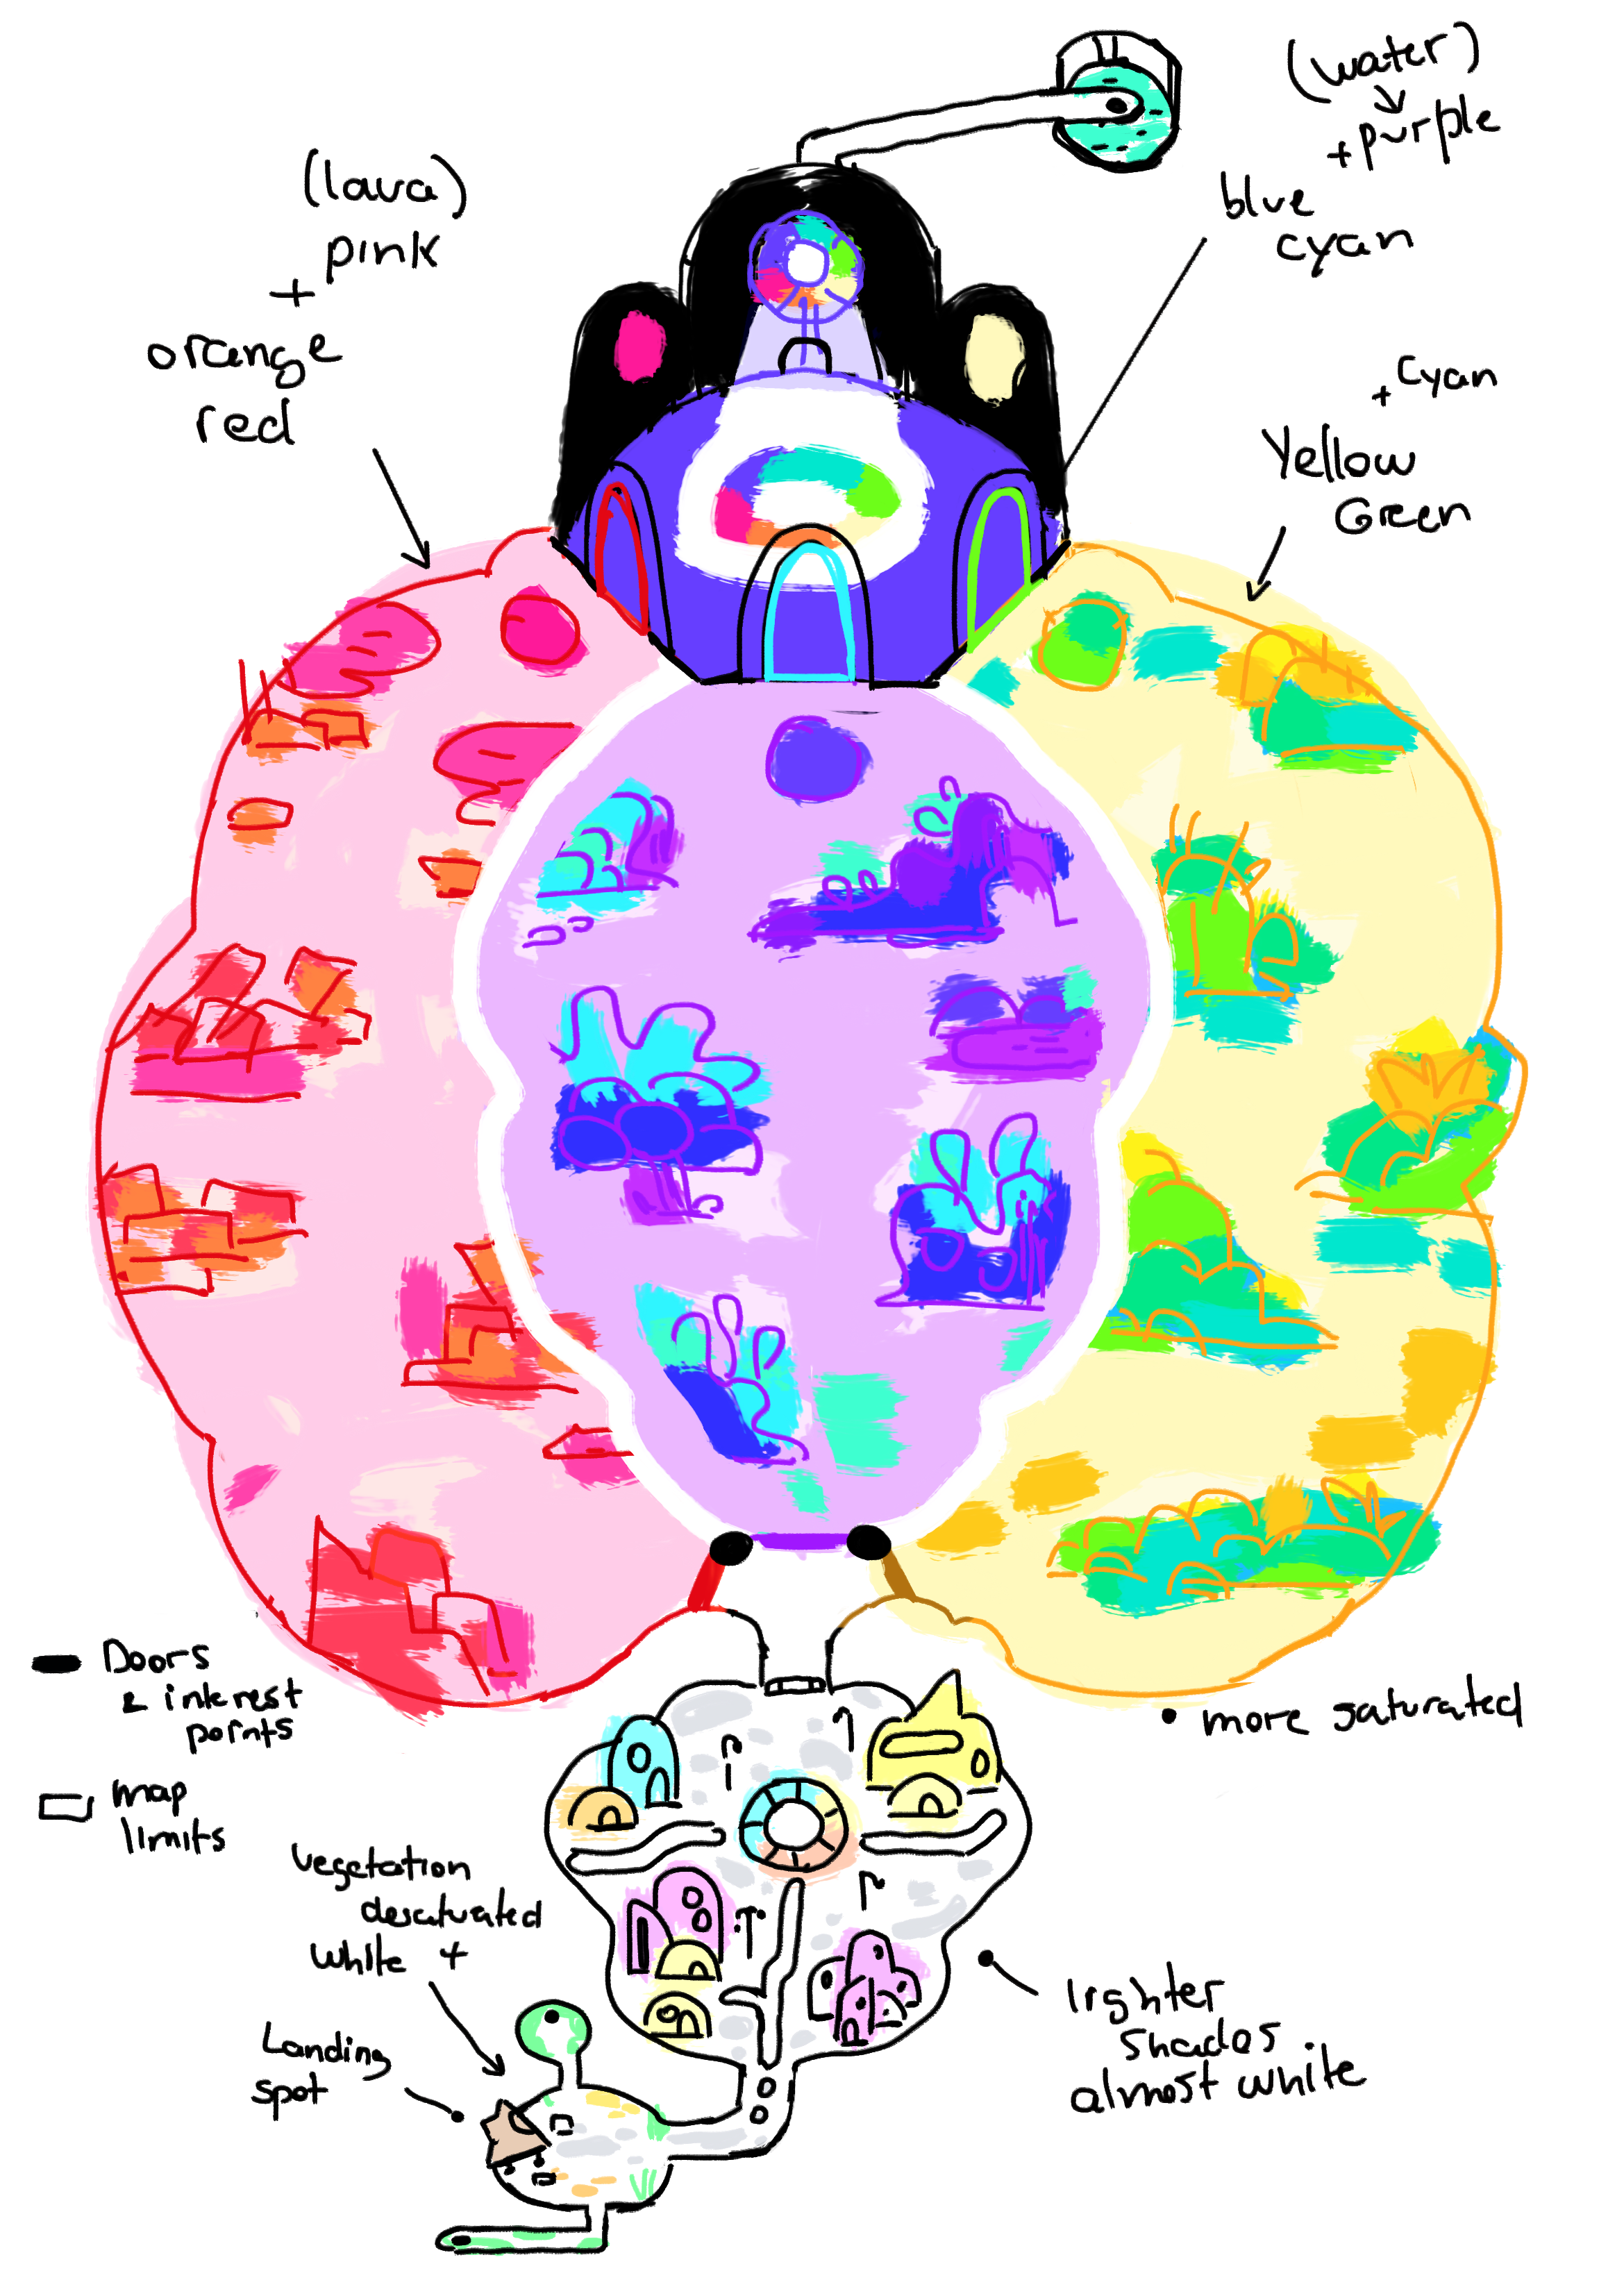 (water)
+purple
blue
cyan
(lava)
pink
+
orange
red
+ cyan
Yellow
Green
Doors
& interest
points
map
limits
• more saturated
vegetation
desaturated
white +
Landing
spot
lighter
shades
almost white